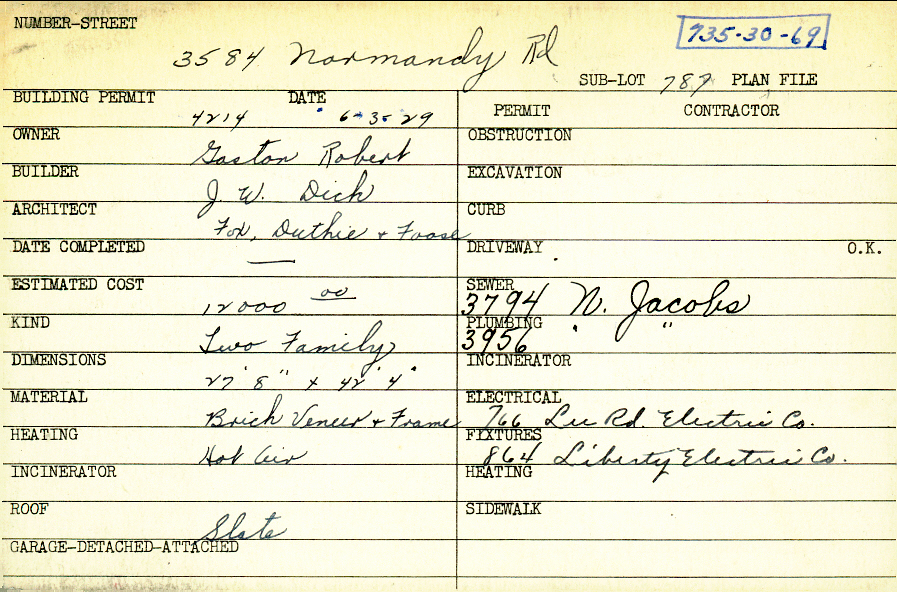 NUMBER-STREET
735-30-69
3584 Normandy Rd
SUB-LOT 787 PLAN FILE
BUILDING PERMIT DATE
4214
PERMIT CONTRACTOR
OWNER
Gaston Robert
OBSTRUCTION
BUILDER
J. W. Dick
EXCAVATION
ARCHITECT
Fox, Duthie + Foose
CURB
DATE COMPLETED
—
DRIVEWAY O.K.
ESTIMATED COST
12000 00
SEWER
3794 N. Jacobs
KIND
Two Family
PLUMBING
3956 " "
DIMENSIONS
27' 8" x 42' 4"
INCINERATOR
MATERIAL
Brick Veneer + Frame
ELECTRICAL
766 Lee Rd. Electric Co.
HEATING
Hot Air
FIXTURES
864 Liberty Electric Co.
INCINERATOR
HEATING
ROOF
Slate
SIDEWALK
GARAGE-DETACHED-ATTACHED